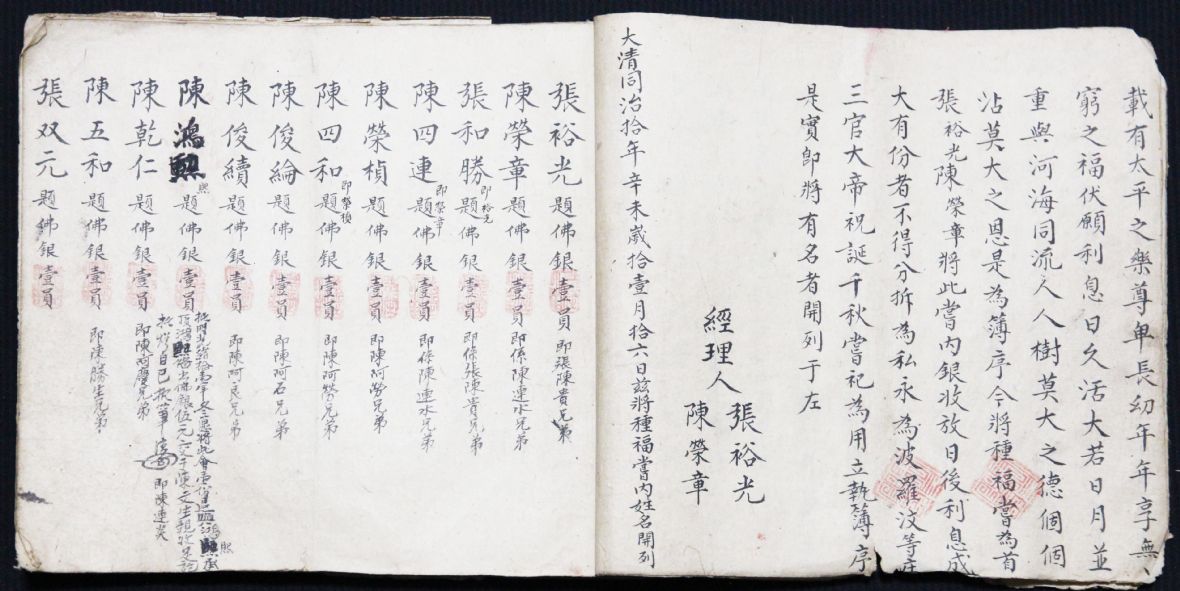 載有太平之樂尊卑長幼年年享無
窮之福伏願利息日久活大若日月並
重與河海同流人人樹莫大之德個個
沾莫大之恩是為簿序今將種福嘗為首
張裕光陳榮章將此嘗內銀收放日後利息成
大有份者不得分拆為私永為波羅汶等庄
三官大帝祝誕千秋嘗祀為用立執簿序
是實即將有名者開列于左
經理人
張裕光
陳榮章
大清同治拾年辛未歲拾壹月拾六日茲將種福嘗內姓名開列
張裕光題佛銀壹員 即張陳貴兄弟
陳榮章題佛銀壹員 即係陳連水兄弟
張和勝即裕光題佛銀壹員 即係張陳貴兄弟
陳四連即榮章題佛銀壹員 即係陳連水兄弟
陳榮楨題佛銀壹員 即陳阿勞兄弟
陳四和即榮楨題佛銀壹員 即陳阿勞兄弟
陳俊綸題佛銀壹員 即陳阿石兄弟
陳俊續題佛銀壹員 即陳阿良兄弟
陳鴻熙熙題佛銀壹員
陳乾仁題佛銀壹員 即陳阿慶兄弟
陳五和題佛銀壹員 即陳勝生兄弟
張双元題佛銀壹員
即陳連炎